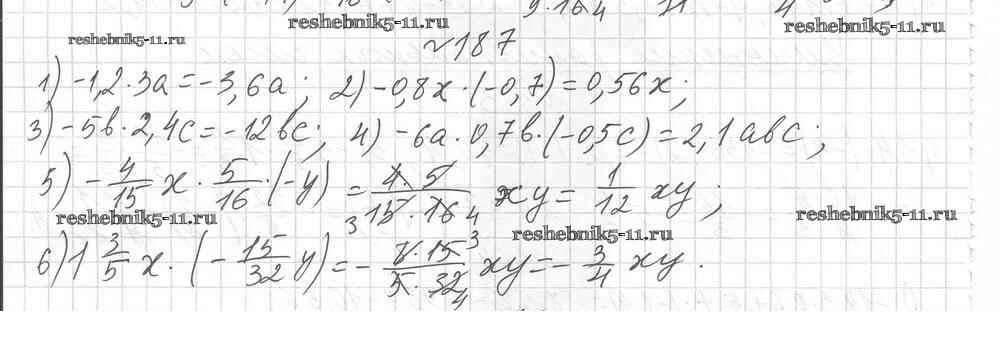 reshebnik5-11.ru reshebnik5-11.ru
reshebnik5-11.ru
№187
1) -1,2·3a=-3,6a; 2) -0,8x·(-0,7)=0,56x;
3) -5b·2,4c=-12bc; 4) -6a·0,7b·(-0,5c)=2,1abc;
5) -4/15 x · 5/16 · (-y) = 4·5/15·16 xy = 1/12 xy;
3 4
reshebnik5-11.ru reshebnik5-11.ru
reshebnik5-11.ru
6) 1 3/5 x · (-15/32 y) = -8·15/5·32 xy = -3/4 xy.
3
4